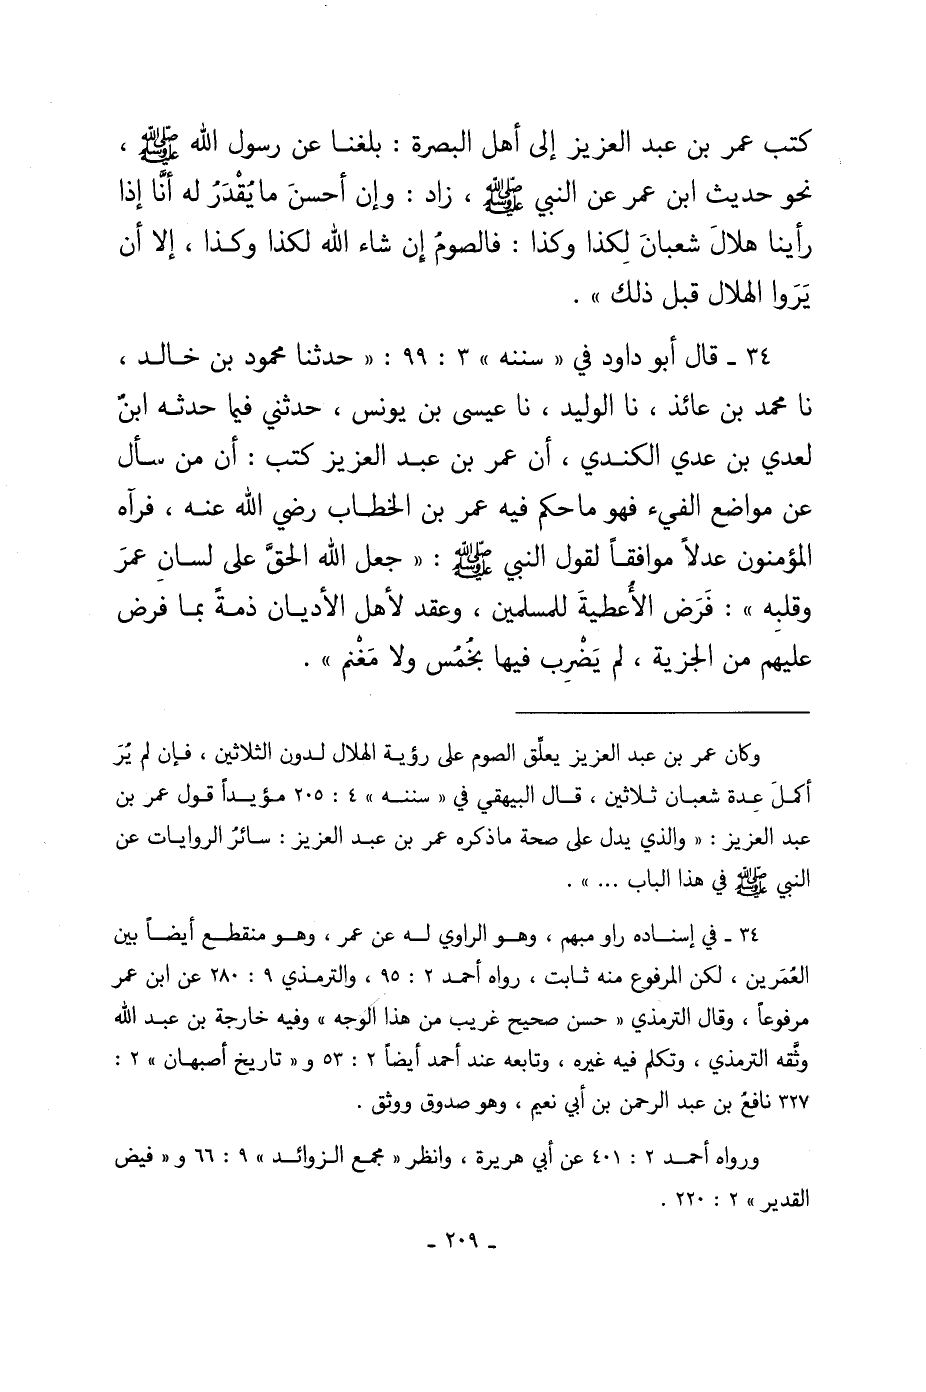 كتب عمر بن عبد العزيز إلى أهل البصرة : بلغنا عن رسول الله ﷺ ،
نحو حديث ابن عمر عن النبي ﷺ ، زاد : وإن أحسنَ مايُقْدَرُ له أنَّا إذا
رأينا هلالَ شعبانَ لِكذا وكذا : فالصومُ إن شاء الله لكذا وكـذا ، إلا أن
يَرَوا الهلال قبل ذلك » .
٣٤ ـ قال أبو داود في « سننه » ٣ : ٩٩ : « حدثنا محمود بن خالد ،
نا محمد بن عائذ ، نا الوليد ، نا عيسى بن يونس ، حدثني فيما حدثه ابنٌ
لعدي بن عدي الكندي ، أن عمر بن عبد العزيز كتب : أن من سأل
عن مواضع الفيء فهو ماحكم فيه عمر بن الخطاب رضي الله عنه ، فرآه
المؤمنون عدلاً موافقاً لقول النبي ﷺ : « جعل الله الحقَّ على لسانِ عمرَ
وقلبِه » : فَرَض الأُعطيةَ للمسلمين ، وعقد لأهل الأديان ذمةً بما فرض
عليهم من الجزية ، لم يَضْرِب فيها بخُمُس ولا مَغْنم » .
وكان عمر بن عبد العزيز يعلِّق الصوم على رؤية الهلال لدون الثلاثين ، فإن لم يُرَ
أكملَ عِدة شعبان ثلاثين ، قال البيهقي في « سننه » ٤ : ٢٠٥ مؤيداً قول عمر بن
عبد العزيز : « والذي يدل على صحة ماذكره عمر بن عبد العزيز : سائرُ الروايات عن
النبي ﷺ في هذا الباب ... » .
٣٤ ـ في إسناده راو مبهم ، وهو الراوي له عن عمر ، وهو منقطع أيضاً بين
العُمَرين ، لكن المرفوع منه ثابت ، رواه أحمد ٢ : ٩٥ ، والترمذي ٩ : ٢٨٠ عن ابن عمر
مرفوعاً ، وقال الترمذي « حسن صحيح غريب من هذا الوجه » وفيه خارجة بن عبد الله
وثَّقه الترمذي ، وتكلم فيه غيره ، وتابعه عند أحمد أيضاً ٢ : ٥٣ و « تاريخ أصبهان » ٢ :
٣٢٧ نافعُ بن عبد الرحمن بن أبي نعيم ، وهو صدوق ووثق .
ورواه أحمد ٢ : ٤٠١ عن أبي هريرة ، وانظر « مجمع الزوائد » ٩ : ٦٦ و « فيض
القدير » ٢ : ٢٢٠ .
ـ ٢٠٩ ـ